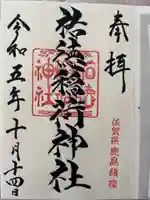 奉拝
佐賀県鹿島鎮座
祐徳稲荷神社
祐徳稲荷神社
令和五年十月十四日